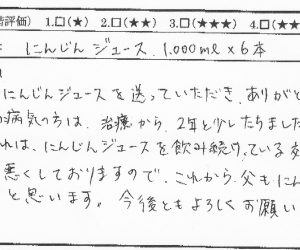 評価) 1.□(★) 2.□(★★) 3.□(★★★) 4.□(★★
: にんじんジュース、1,000ml×6本
にんじんジュースを送っていただき、ありがと
病気の方は、治療から、2年と少したちました
れは、にんじんジュースを飲み続けている
悪くしておりますので、これから、父もにん
と思います。今後ともよろしくお願い